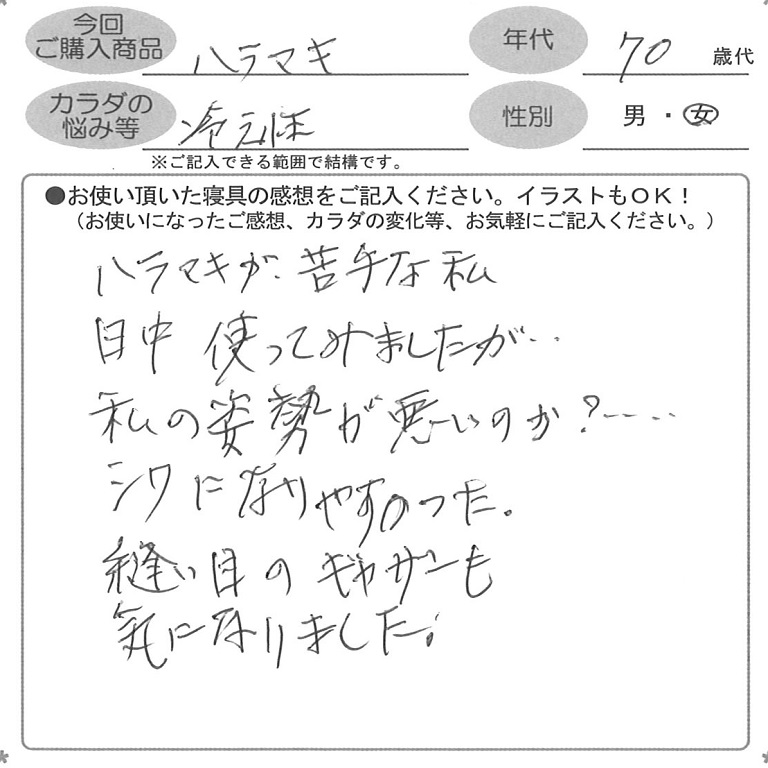 今回
ご購入商品
ハラマキ
年代
70
歳代
カラダの
悩み等
冷え性
性別
男・女
※ご記入できる範囲で結構です。
●お使い頂いた寝具の感想をご記入ください。イラストもOK！
（お使いになったご感想、カラダの変化等、お気軽にご記入ください。）
ハラマキが苦手な私
日中 使ってみましたが‥
私の姿勢が悪いのか？‥‥
シワになりやすかった。
縫い目のギャザーも
気になりました。